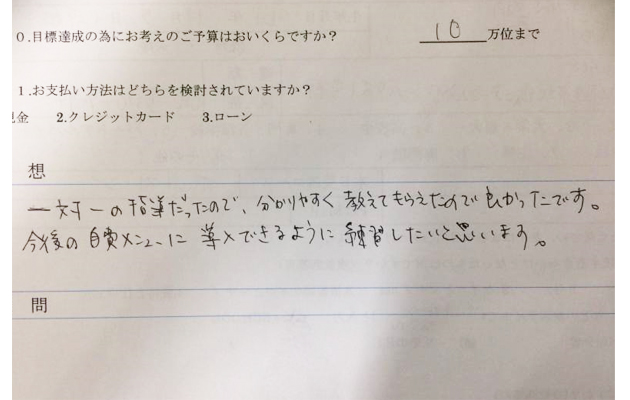 0.目標達成の為にお考えのご予算はおいくらですか？ 10 万位まで
1.お支払い方法はどちらを検討されていますか？
現金 2.クレジットカード 3.ローン
想
一対一の指導だったので、分かりやすく教えてもらえたので良かったです。
今後の自費メニューに導入できるように練習したいと思います。
問